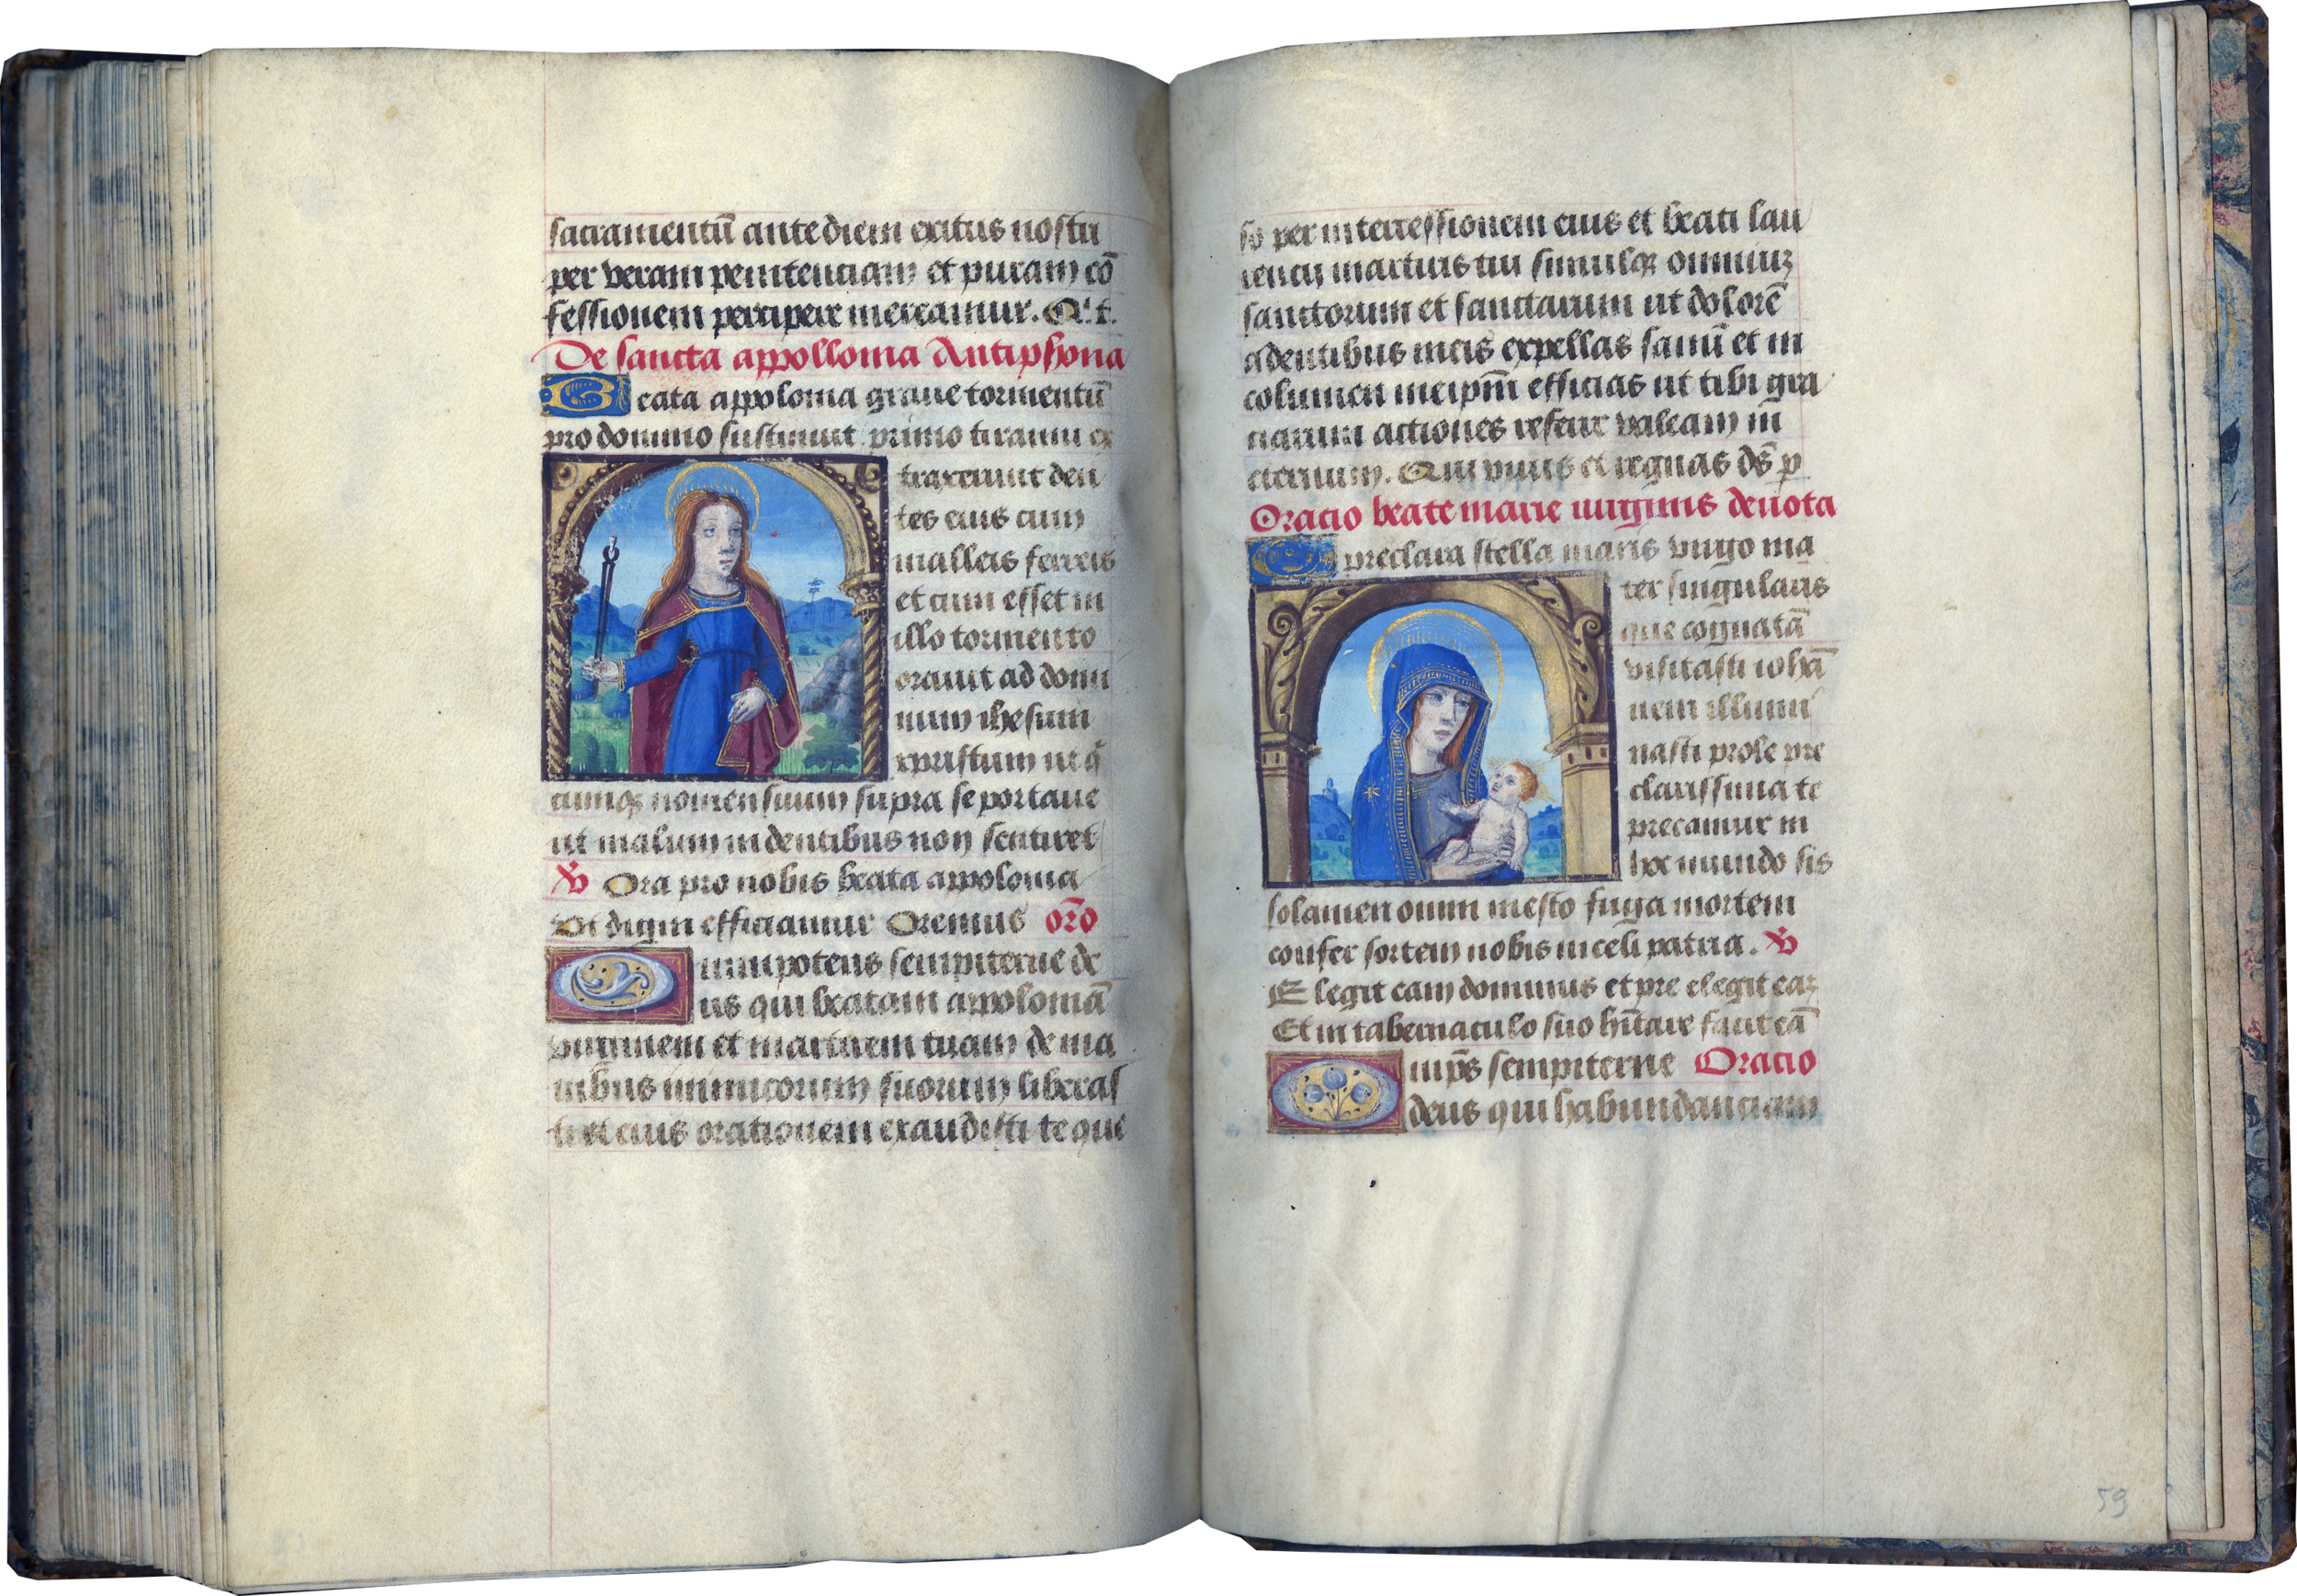 sacramentū ante diem exitus nostri
per veram penitenciam et puram cō
fessionem percipere mereamur. Q̇ t.
De sancta appollonia Antiphona
Beata appolonia graue tormentū
pro domino sustinuit primo tiranni ex
traxerunt den
tes eius cum
malleis ferreis
et cum esset in
illo tormento
orauit ad domi
num ihesum
xpristum ut q̄
cumqꝫ nomen suum supra se portaue
ut malum in dentibus non sentiret
℣ Ora pro nobis beata appolonia
Vt digni efficiamur Oremus orō
Omnipotens sempiterne de
us qui beatam appoloniā
virginem et martirem tuam de ma
nibus inimicorum suorum liberas
ti et eius orationem exaudisti te que
so per intercessionem eius et beati lau
rencij martiris tui simulqꝫ omniuꝫ
sanctorum et sanctarum ut dolorē
a dentibus meis expellas sanū et in
columen meipm̄ efficias ut tibi gra
ciarum actiones referre valeam in
eternum. Qui viuis et regnas ds̄ p
Oracio beate marie virginis deuota
O preclara stella maris virgo ma
ter singularis
que cognatā
visitasti iohā
nem illumi
nasti prole pre
clarissima te
precamur in
hoc mundo sis
solamen omni mesto fuga mortem
confer sortem nobis in celi patria. ℣
Elegit eam dominus et pre elegit eaꝫ
Et in tabernaculo suo hītare facit eā
Omps̄ sempiterne Oracio
deus qui habundanciam
59